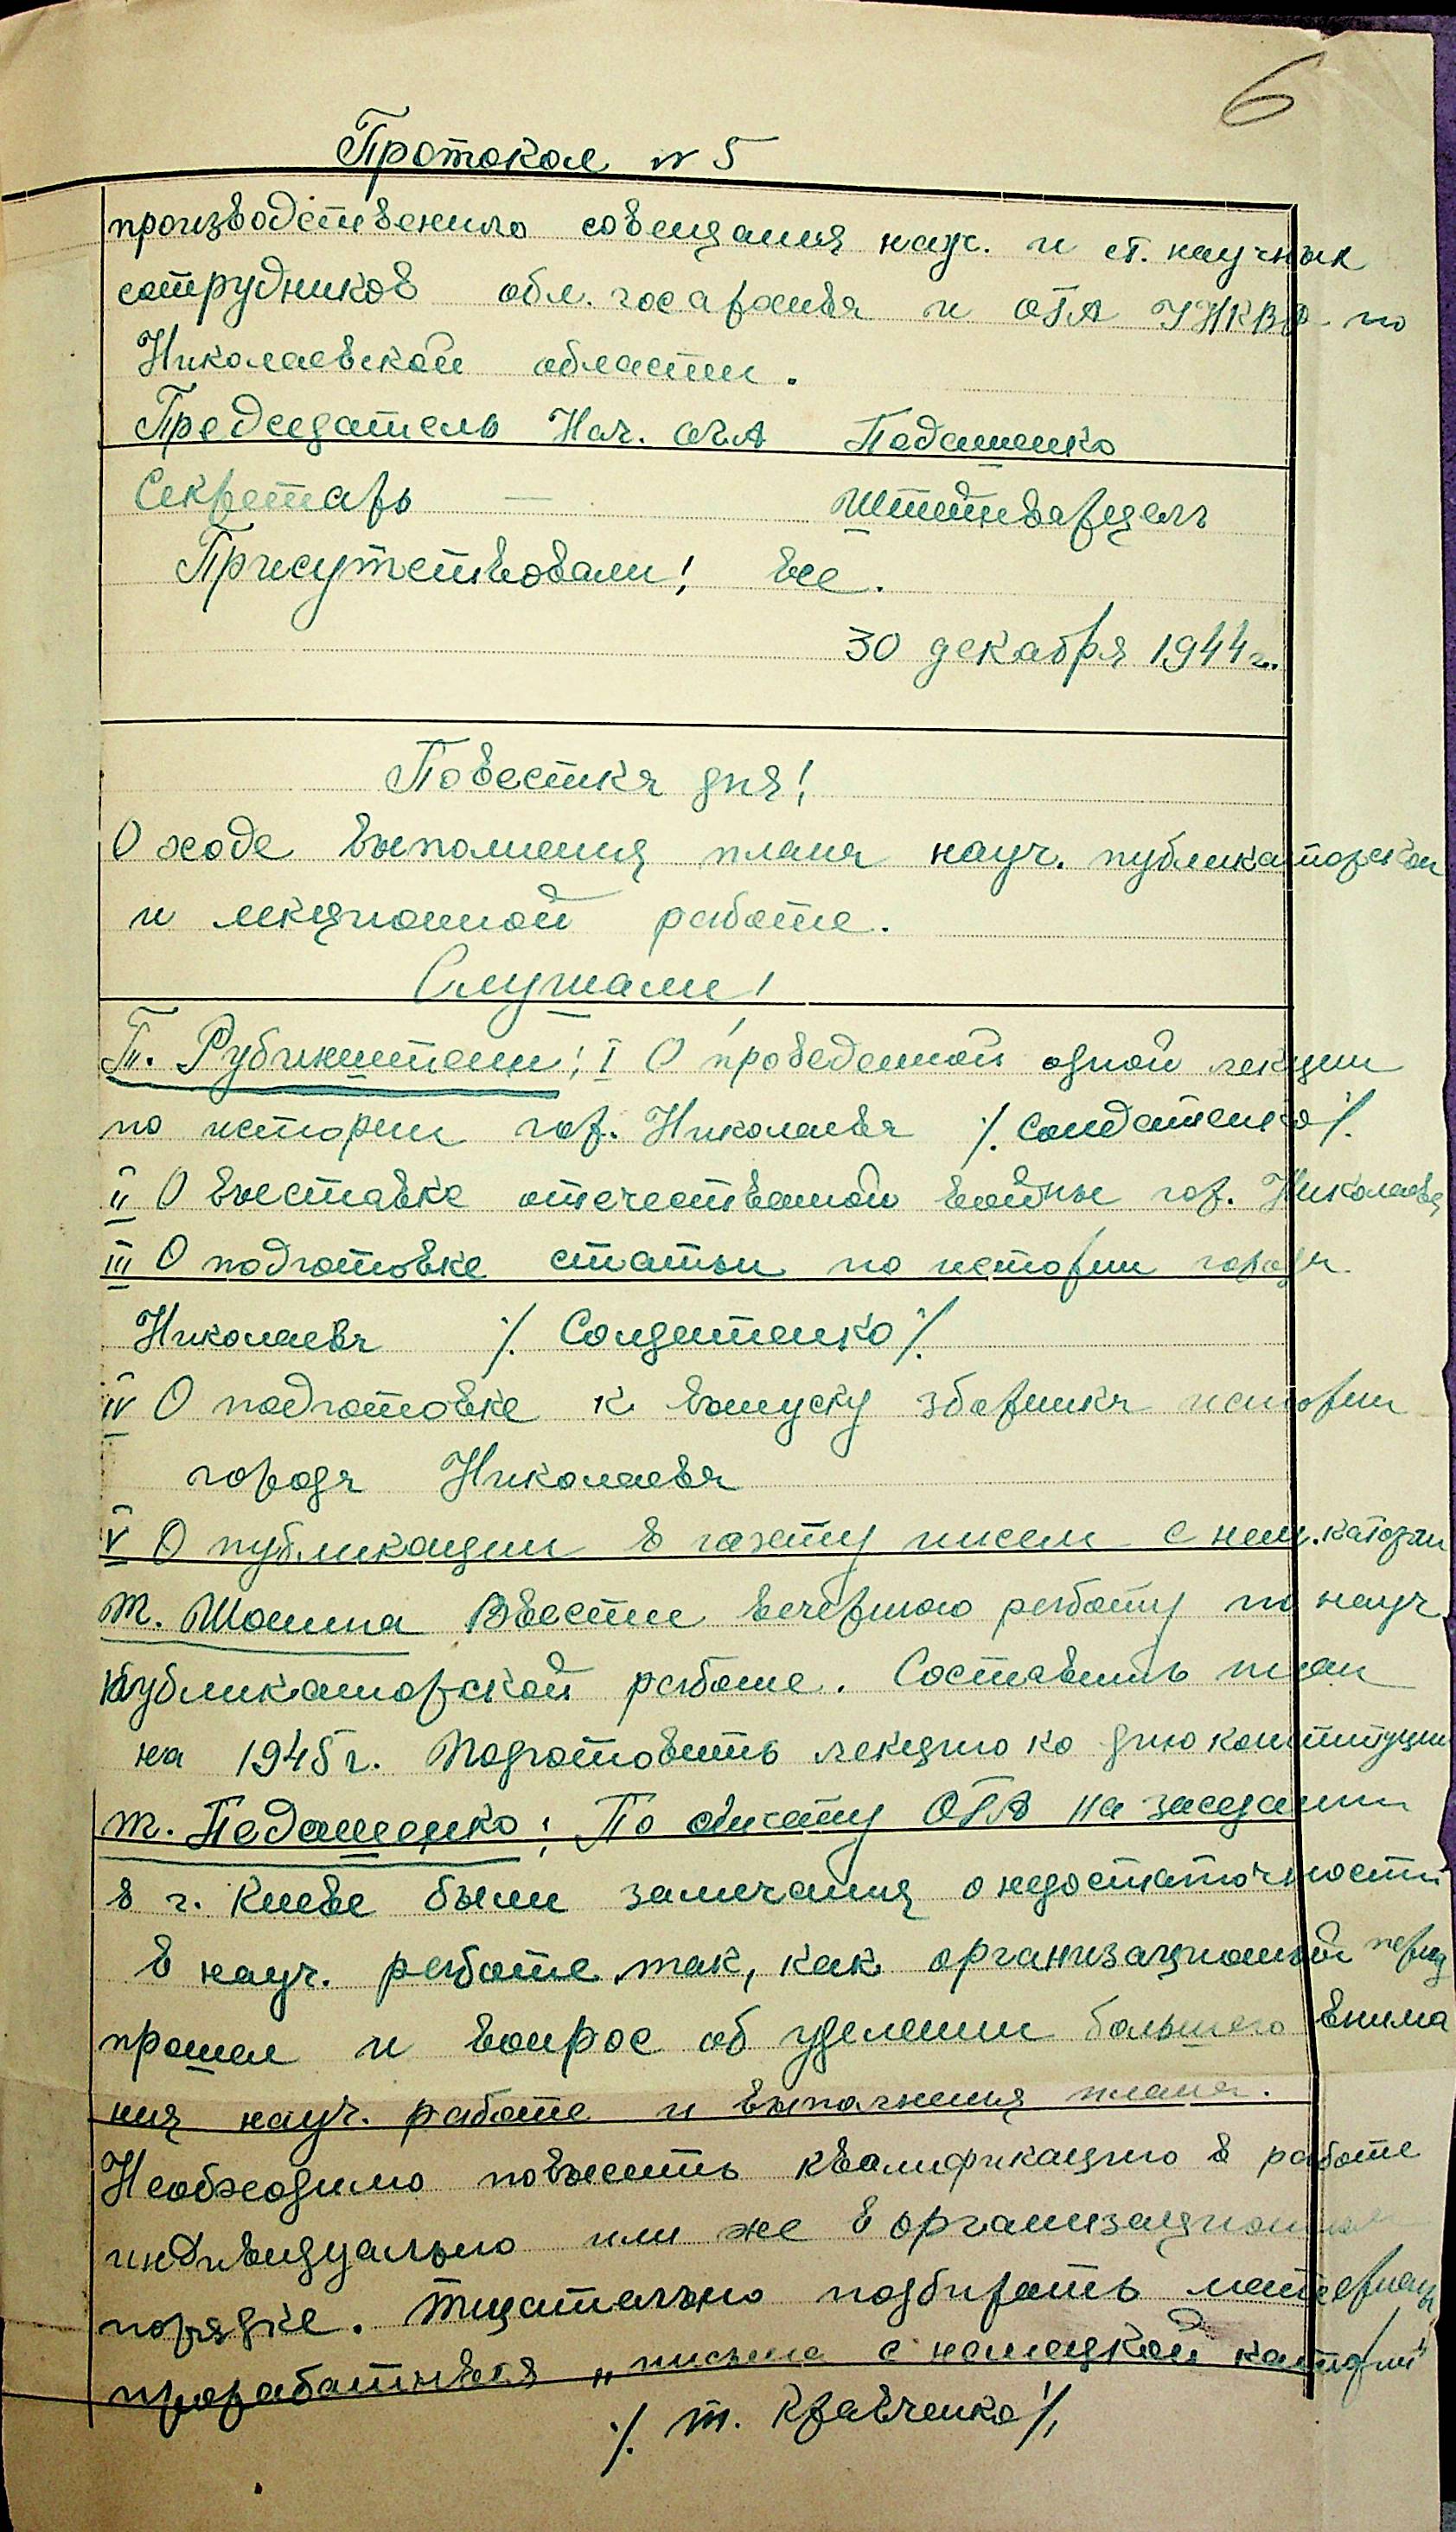 6
Протокол № 5
производственного совещания науч. и ст. научных
сотрудников обл. госархива и ОГА УНКВД по
Николаевской области.
Председатель Нач. ОГА Педашенко
Секретарь —
Присутствовали! все.
30 декабря 1944 г.
Повестка дня!
О ходе выполнения плана науч. публикаторской
и лекционной работе.
Слушали!
Т. Рубинштейн! I О проведенной одной лекции
по истории гор. Николаева /. Солдатенко /.
II О выставке отечественной войны гор. Николаева
III О подготовке статьи по истории города
Николаева /. Солдатенко /.
IV О подготовке к выпуску зборника истории
города Николаева
V О публикации в газету писем с нем. каторги
т. Шонина Ввести вечернюю работу по науч.
публикаторской работе. Составить план
на 1945 г. Подготовить лекцию ко дню конституции
т. Педашенко: По отчету ОГА на заседании
в г. Киеве были замечания о недостаточности
в науч. работе, так, как организационный период
прошел и вопрос об уделении большего внима
ния науч. работе и выполнения плана.
Необходимо повысить квалификацию в работе
индивидуально или же в организационном
порядке. Тщательно подбирать материалы
„письма с немецкой каторги"
/. т. Кравченко /.